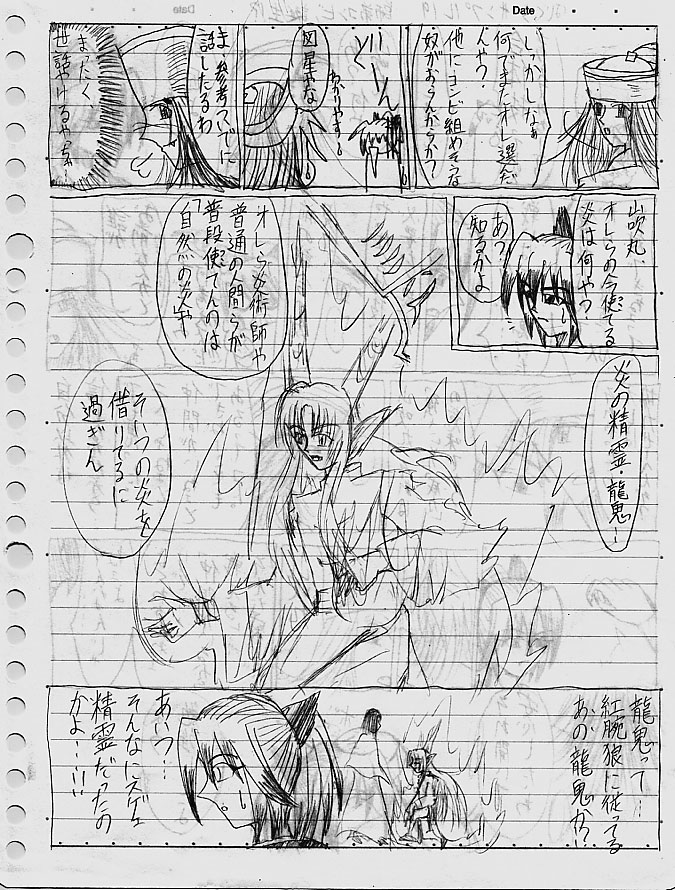 Date
Date
しっかしなぁ
何できたオレ選だ
んやっ?
他にコンビ組めそうな
奴がおらんからか?
どーーん
わかりやすー
図星やな
ま、参考ついでに
話したるわ
まったく
世話やけるやっちゃー
山吹丸、
オレらの今使てる
炎は何やっ
あ?
知るかよ
炎の精霊・龍鬼ー
オレら炎術師や
普通の人間らが
普段使てんのは
「自然の炎や
そいつの炎を
借りてるに
過ぎん
龍鬼って…
紅腕狼に従ってる
あの龍鬼か?
あいつ…
そんなにスゲェ
精霊だったの
かよ……